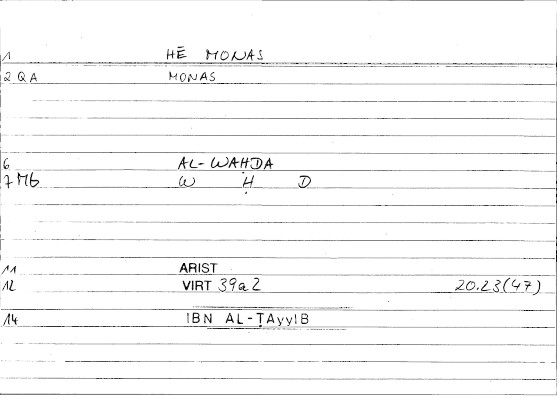 1 HĒ MONAS
2 QA MONAS
6 AL-WAḤDA
7 M6 W Ḥ D
11 ARIST
12 VIRT 39a2 20.23(47)
14 IBN AL-ṬAyyIB